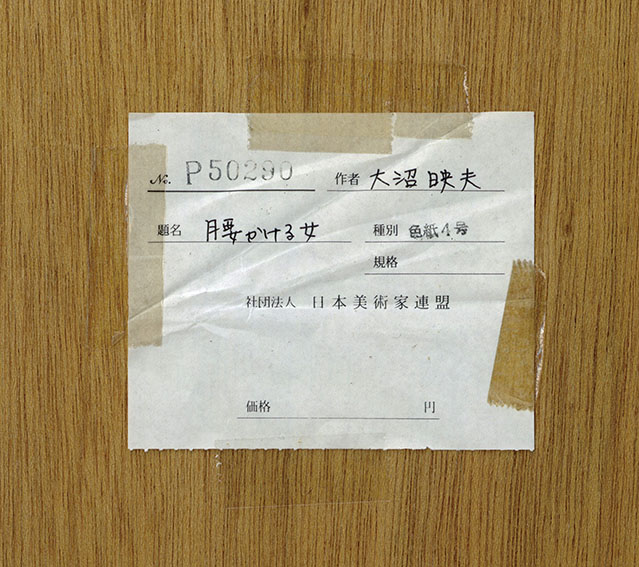 No. P50290 作者 大沼映夫
題名 腰かける女 種別 色紙4号
規格
社団法人 日本美術家連盟
価格 円